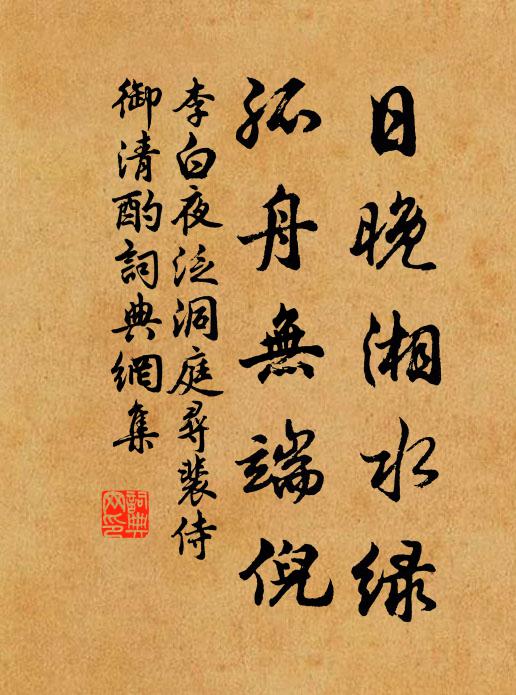 日晚湘水绿
孤舟無端倪
李白夜泛洞庭尋裴侍
御清酌詞典網集
詞典网印